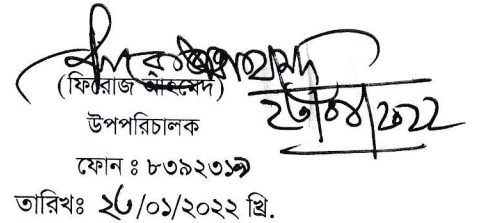 (ফিরোজ আহমেদ)
উপপরিচালক
ফোন ঃ ৮৩৯২৩১৯
তারিখঃ ২৬/০১/২০২২ খ্রি.